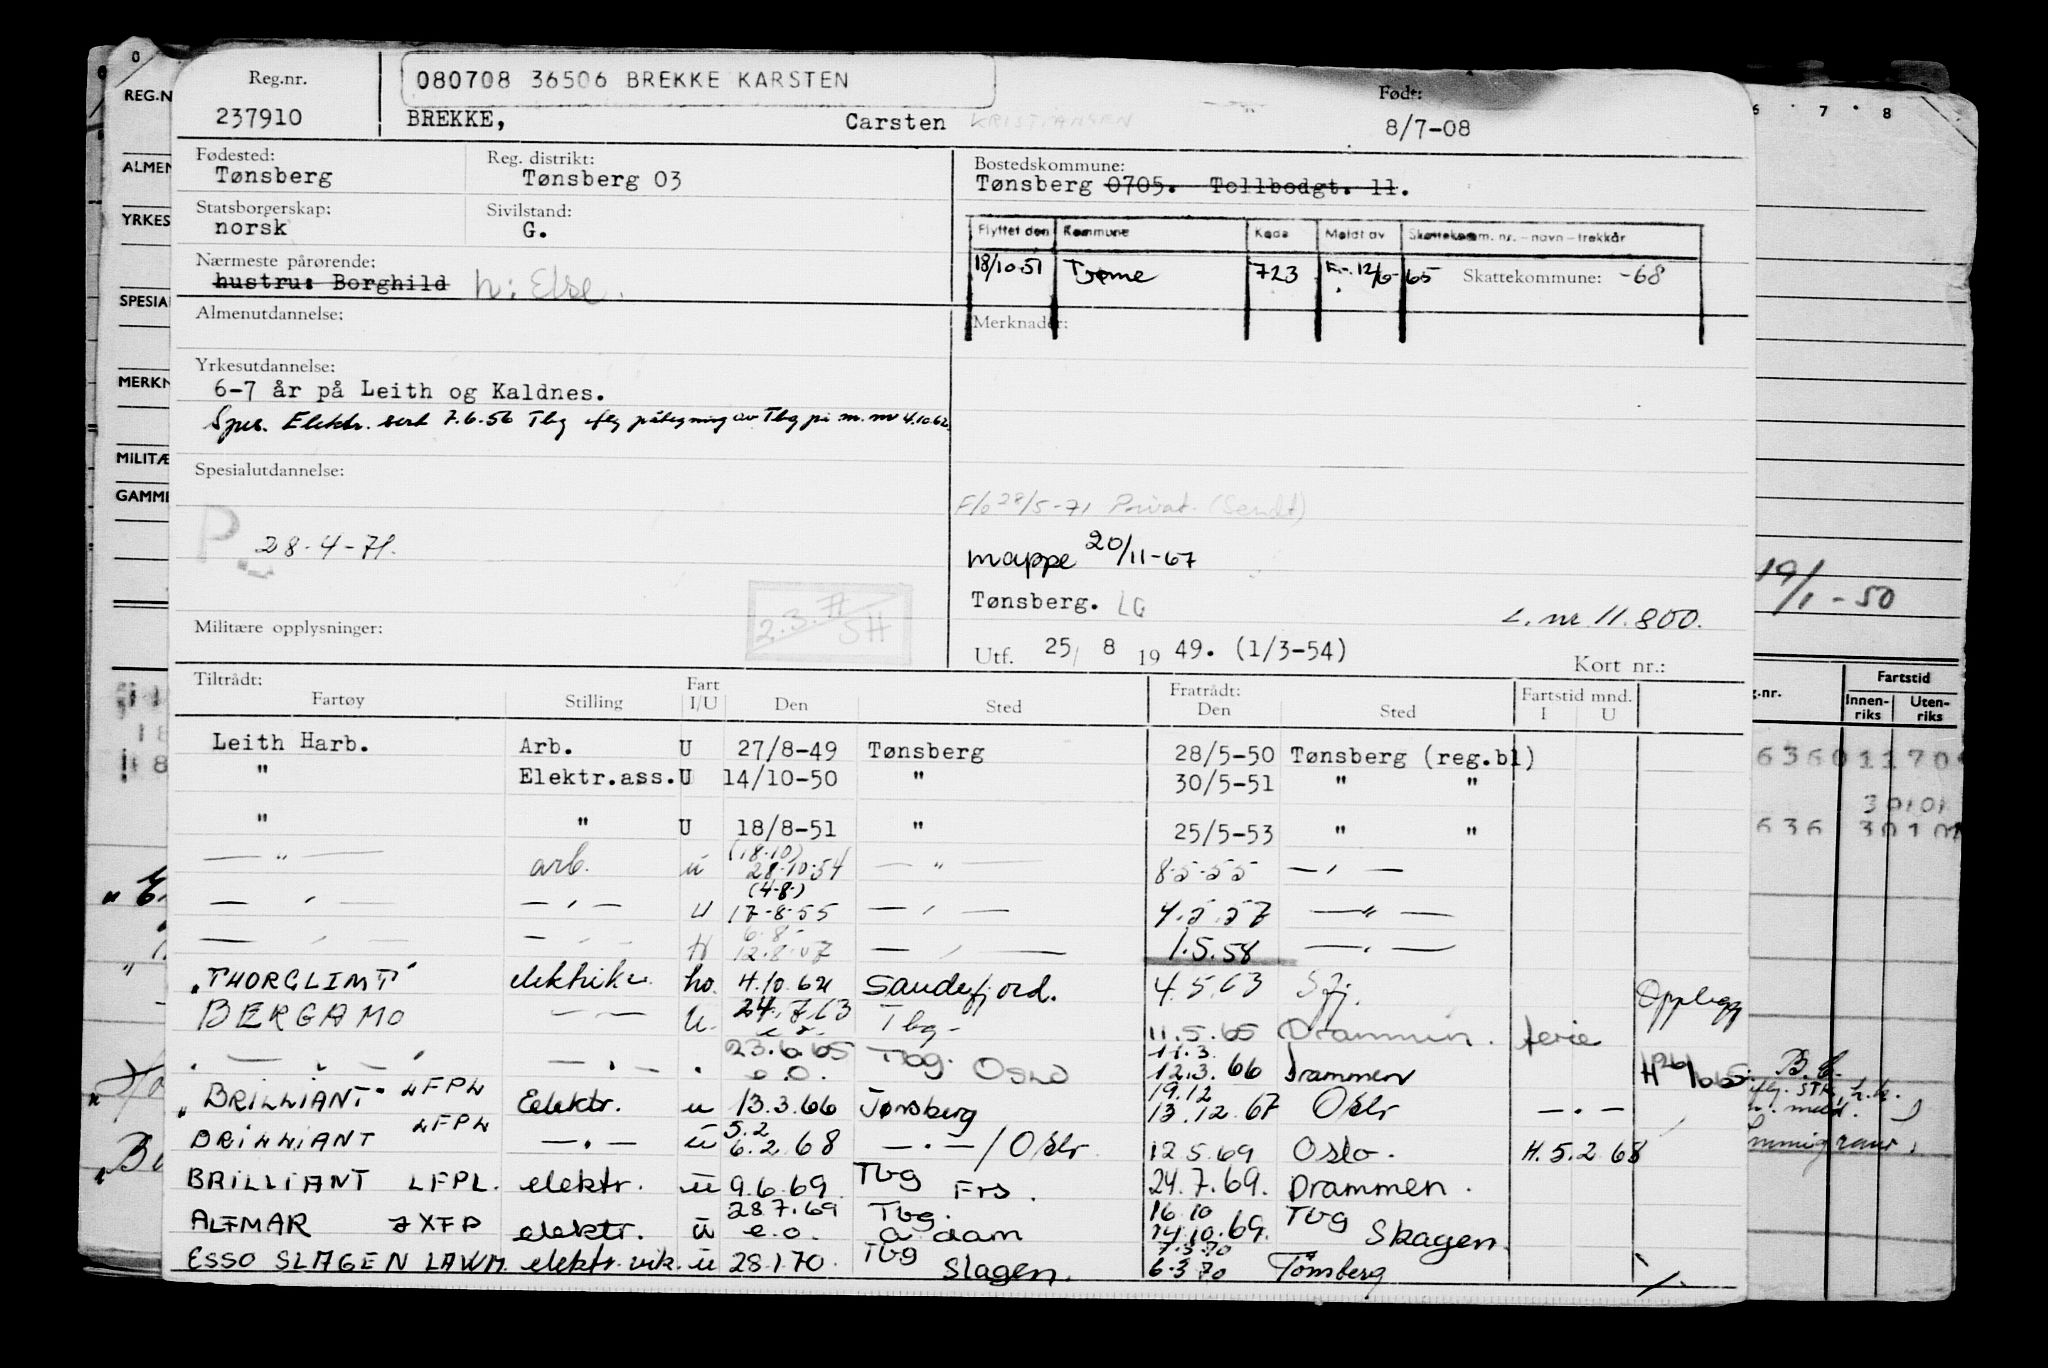 Reg.nr.
080708 36506 BREKKE KARSTEN
Født:
237910 BREKKE, Carsten KRISTIANSEN 8/7-08
Fødested: Reg. distrikt: Bostedskommune:
Tønsberg Tønsberg 03 Tønsberg 0705. Tollbodgt. 11.
Statsborgerskap: Sivilstand:
norsk G.
Flyttet den Kommune Kode Meldt av Skattekomm. nr. - navn - trekkår
Nærmeste pårørende:
hustru: Borghild h: Else.
18/10-51 Tjøme 723 12/6-65 Skattekommune: -68
Almenutdannelse: Merknader:
Yrkesutdannelse:
6-7 år på Leith og Kaldnes.
Elektr. sert 7.6.56 Tbg påtegning av Tbg 4.10.62
Spesialutdannelse:
28/5-71 Privat (Sendt)
P 28-4-71.
mappe 20/11-67
Tønsberg. LG
2.3.71 SH
L. nr 11.800.
Militære opplysninger:
Utf. 25/ 8 19 49. (1/3-54) Kort nr.:
Tiltrådt: Fart Fratrådt: Fartstid mnd.
Fartøy Stilling I/U Den Sted Den Sted I U
Leith Harb. Arb. U 27/8-49 Tønsberg 28/5-50 Tønsberg (reg.bl)
" Elektr.ass. U 14/10-50 " 30/5-51 " "
" " U 18/8-51 " 25/5-53 " "
(18.10)
— " — arb. u 28.10.54 — " 8-5-55 — " —
(4-8-)
— " — — " — U 17-8-55 — " — 4.5.57 — " —
6.8-
— " — — " — 12.8.57 — " — 1.5.58 — " —
"THORGLIMT" elektriker ho. 4.10.62 Sandefjord. 4.5.63 Sfj. Opplegg
BERGAMO — " — U. 24.7.63 Tbg- 11.5.65 Drammen. ferie
23.6.65 Tbg. Oslo 11.3.
e.o. 12.3.66 Drammen
"BRILLIANT" LFPL Elektr. u 13.3.66 Tønsberg 19.12
13.12.67 Oslo — " —
5.2
BRILLIANT LFPL — " — u 6.2.68 — " — / Oslo 12.5.69 Oslo. H.5.2.68
BRILLIANT LFPL. elektr. u 9.6.69 Tbg Frs. 24.7.69. Drammen.
28.7.69 Tbg. 16.10 Tbg
ALTMAR JXFP elektr. u e.o. a dam 14.10.69. Skagen.
7.3.70
ESSO SLAGEN LAWM. elektr. vik. u 28.1.70. Tbg Slagen. 6.3.70 Tønsberg
REG.N
ALMEN
YRKES
SPESIAL
MERKN
MILITÆ
GAMME
6 7 8
19/1-50
g.nr. Fartstid
Innen-riks Uten-riks